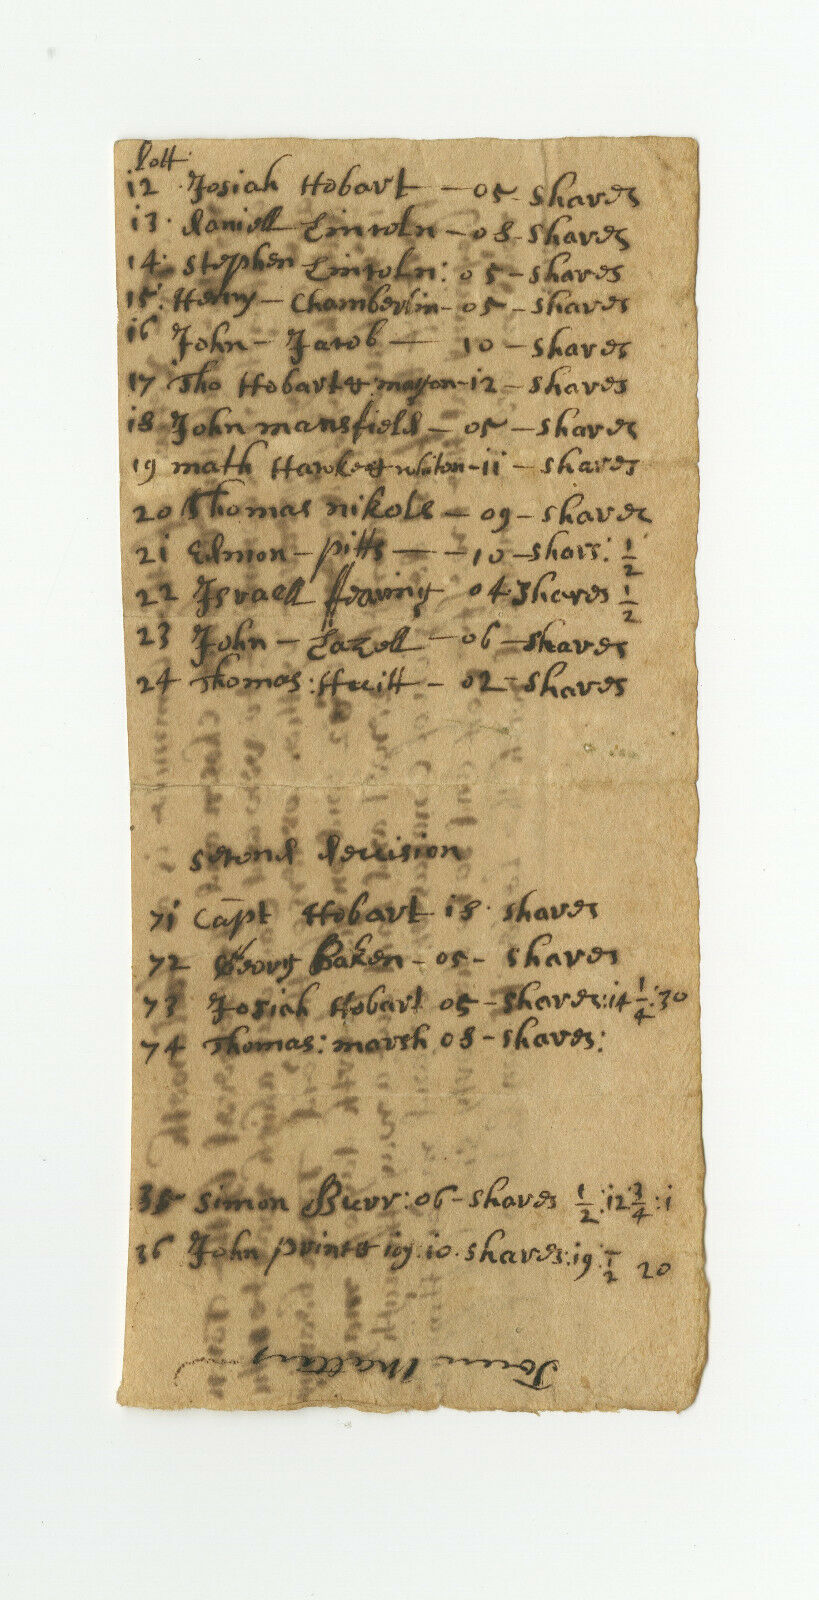 Lott
12 Josiah Hobart — 05 - shares
13 daniell Lincoln - 08 - shares
14 stephen Lincoln: 05 - shares
15 Henry - Chamberlin - 05 - shares
16 John - Jacob — 10 - shares
17 Tho Hobart & mayon - 12 - shares
18 John mansfield - 05 - shares
19 math Hawke & whiton - 11 - shares
20 Thomas nikols - 09 - shares
21 Edmon - pitts — 10 - shars: 1/2
22 Israell ffearing 04 shares 1/2
23 John - Lazell - 06 - shares
24 Thomas: Huitt - 02 - shares
second devision
71 Capt Hobart 18 shares
72 Georg Baken - 05 - shares
73 Josiah Hobart 05 - shares: 14 1/4: 30
74 Thomas: marsh 08 - shares:
35 simon Burr: 06 - shares 1/2: 12 3/4: 1
36 John prince 10 shares: 19: 1/2 20
Town Mattars